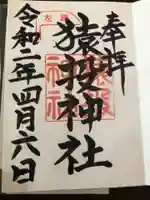 奉拝
猿投神社
令和二年四月六日